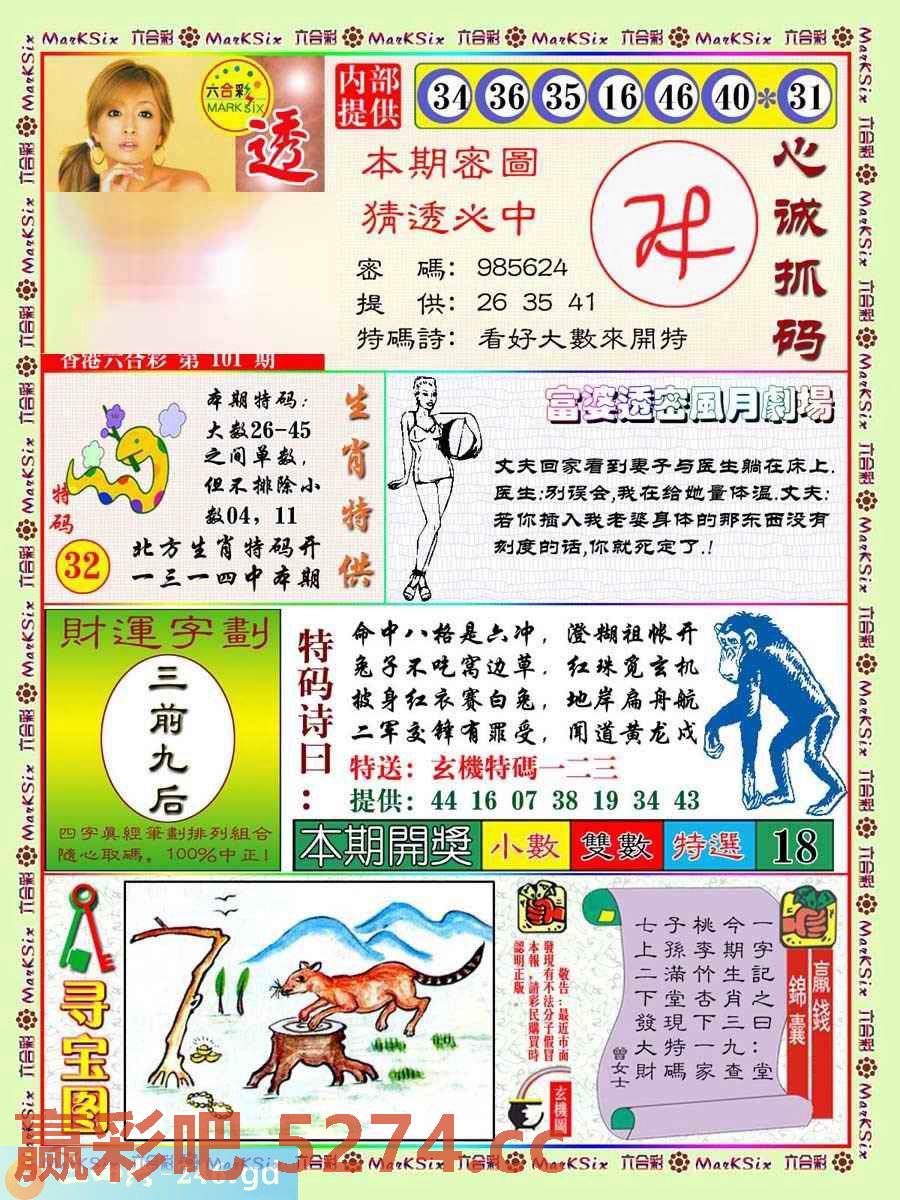 MarKSix 六合彩 MarKSix 六合彩 MarKSix 六合彩 MarKSix 六合彩 MarKSix 六合彩
六合彩
MARK SIX
透
内部
提供
34 36 35 16 46 40 * 31
本期密圖
猜透必中
密 碼: 985624
提 供: 26 35 41
特碼詩: 看好大數來開特
心诚抓码
香港六合彩 第 101 期
本期特码:
大数26-45
之间单数,
但不排除小
数04, 11
北方生肖特码开
一三一四中本期
特码
32
生肖特供
富婆透密風月劇場
丈夫回家看到妻子与医生躺在床上.
医生:别误会,我在给她量体温.丈夫:
若你插入我老婆身体的那东西没有
刻度的话,你就死定了.!
財運字劃
三前九后
四字真經筆劃排列組合
隨心取碼。100%中正!
特码诗曰:
命中八格是六冲, 澄糊祖帐开
兔子不吃窝边草, 红珠觅玄机
披身红衣赛白兔, 地岸扁舟航
二军交锋有罪受, 闻道黄龙戍
特送: 玄機特碼一二三
提供: 44 16 07 38 19 34 43
本期開獎 小數 雙數 特選 18
寻宝图
敬告:最近市面
發現有不法分子假冒
本報,請彩民購買時
認明正版。
玄機圖
一字記之曰:堂
今期生肖三九查
桃李竹杏下一家
子孫滿堂現特碼
七上二下發大財
曾女士
贏錢
錦囊
赢彩吧 5274.cc
MarKSix 六合彩 MarKSix 六合彩 MarKSix 六合彩 MarKSix 六合彩